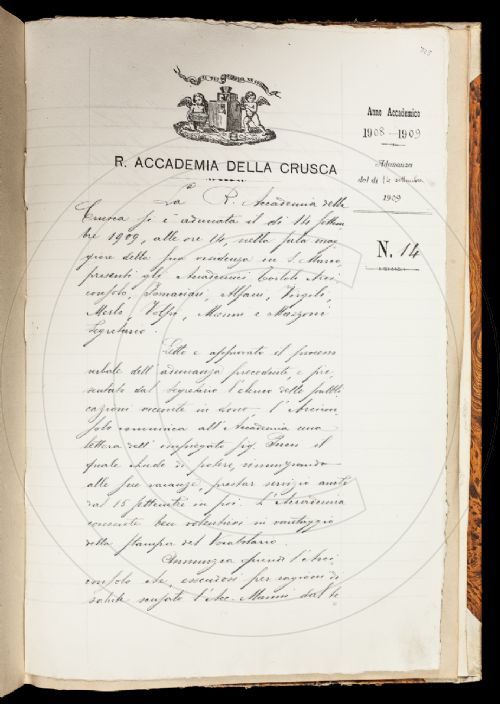 Anno Accademico
1908-1909
Adunanza
del dì 14 settembre
1909
N. 14
R. ACCADEMIA DELLA CRUSCA
La R. Accademia della
Crusca si è adunata il dì 14 settem
bre 1909, alle ore 14, nella sala mag
giore della sua residenza in S. Marco,
presenti gli Accademici Tortoli Arci
consolo, Alfani, Vergilio,
Merlo, Volpi, Manni e Mazzoni
Segretario.
Letto e approvato il processo
verbale dell'adunanza precedente, e pre
sentato dal Segretario l'elenco delle pubbli
cazioni ricevute in dono, l'Arcicon
solo comunica all'Accademia una
lettera dell'impiegato sig. il
quale chiede di potere, rinunziando
alle sue vacanze, prestar servizio anche
dal 15 settembre in poi. L'Accademia
consente ben volentieri in vantaggio
della stampa del Vocabolario.
Annunzia quindi l'Arci
consolo che, essendosi per ragioni di
salute scusato l'Acc. Manni dal te